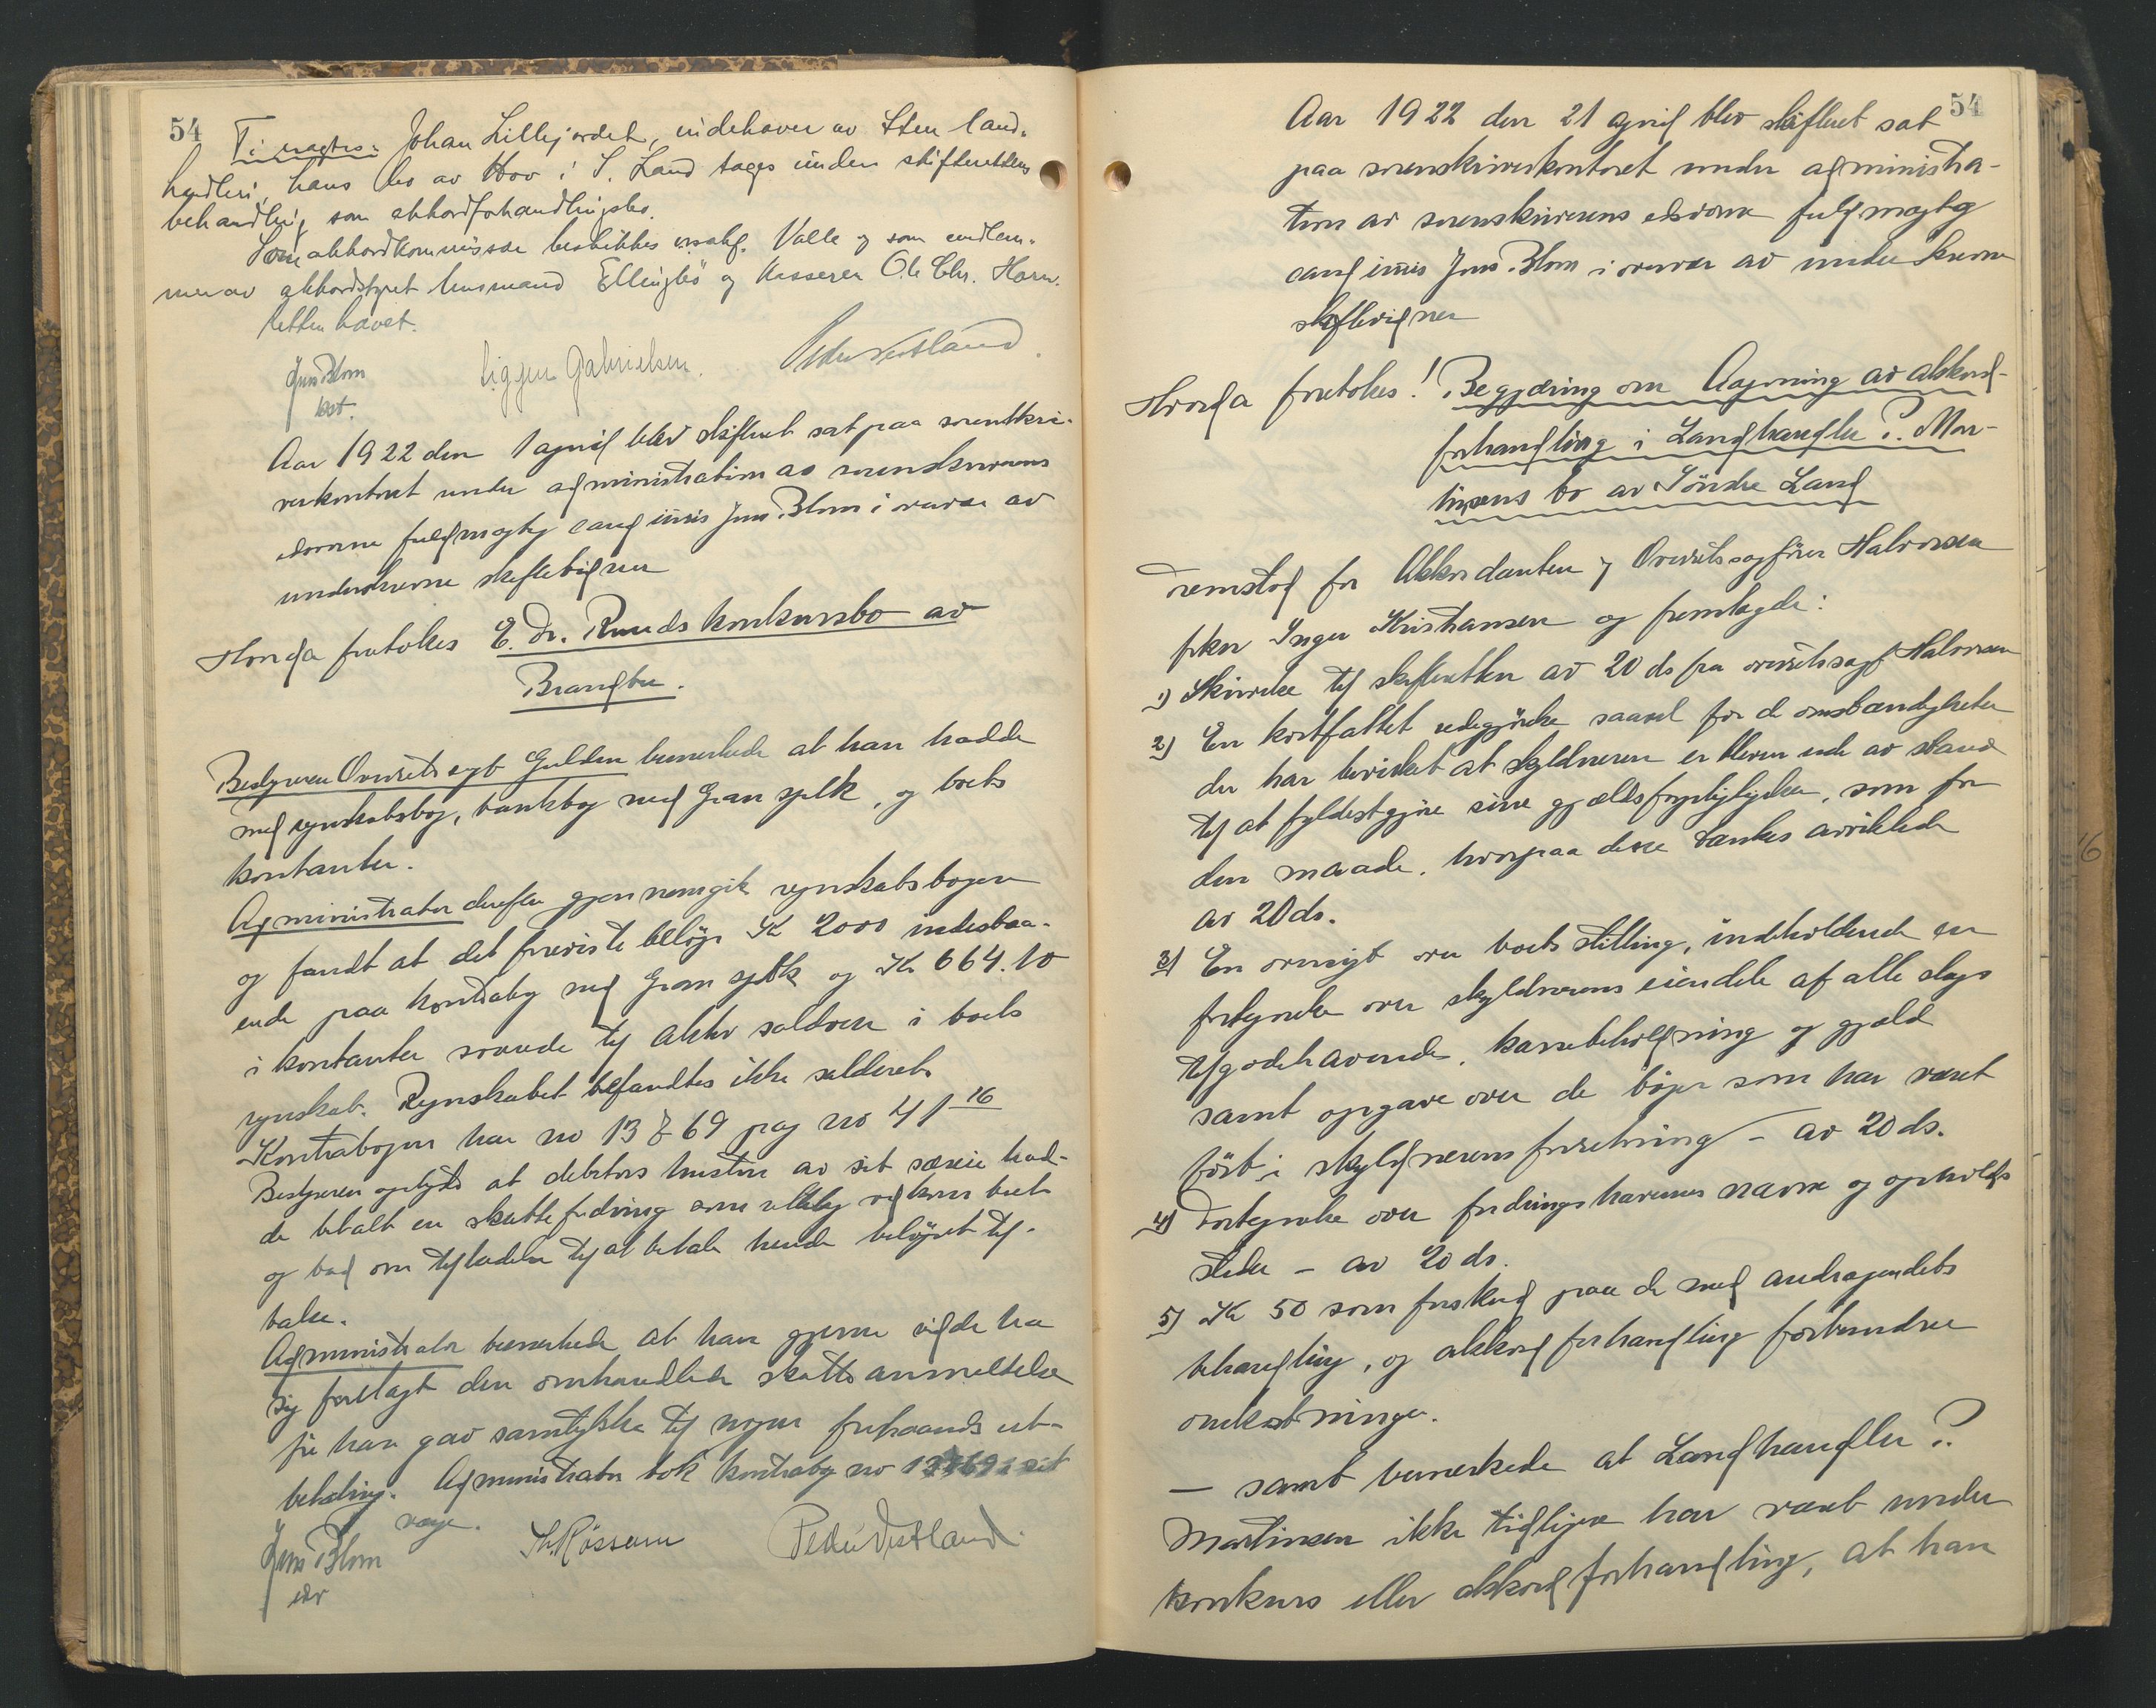 54
Johan Lillejordet, indehaver av Sten land-
handleri, hans bo av Hov i S. Land tages under skifterettens
behandling som akkordforhandlingsbo.
Som akkordkommissær beskikkes Valle og som medlem-
mer av akkordstyret husmand Ellingbö og kasserer O. Chr. Horn.
Retten hævet.
Jens Blom
kst.
Gabrielsen.
Peder Vestland.
Aar 1922 den 1 april blev skifteret sat paa sorenskri-
verkontoret under administration av sorenskriverens
edsvorne fuldmægtig cand juris Jens Blom i overvær av
underskrevne skiftevidner
Hvorda foretokes E. Dr. Ruuds konkursbo av
Brandbu.
Bestyreren Overretssagf Gulden bemerkede at han hadde
med regnskabsbog, bankbog med Gran spbk, og boets
kontanter.
Administrator derefter gjennemgik regnskabsbogen
og fandt at det foreviste beløp Kr 2000 indestaa-
ende paa kontrabog med Gran spbk og Kr 664.10
i kontanter svarede til aktiv saldoen i boets
regnskab. Regnskabet befandtes ikke salderet.
Kontrabogen har no 13869 pag no 41 16
Bestyreren oplyste at debitors hustru av sit særeie had-
de betalt en skattefordring som vedkom boet
og bad om tilladelse til at betale hende beløpet til-
bake.
Administrator bemerkede at han gjerne vilde ha
sig forelagt den omhandlede skatteanmeldelse
før han gav samtykke til nogen forhaands ut-
betaling. Administrator tok kontrabog no 13869 i sit
værge.
Jens Blom
edsv
Røssum
Peder Vestland.
54
Aar 1922 den 21 april blev skifteret sat
paa sorenskriverkontoret under administra-
tion av sorenskriverens edsvorne fuldmægtig
cand juris Jens Blom i overvær av underskrevne
skiftevidner
Hvorda foretokes: Begjæring om Aapning av akkord-
forhandling i Landhandler P. Mar-
tinsens bo av Söndre Land
Fremstod for Akkordanten og Overretssagfører Halvorsen
frkn Inger Kristiansen og fremlagde:
1) Skrivelse til skifteretten av 20 ds fra overretssagf Halvorsen
2) En kortfattet redegjörelse saavel for de omstændigheter
der har bevirket at skyldneren er bleven ude av stand
til at fyldestgjøre sine gjældsforpligtelser, som for
den maade, hvorpaa disse tænkes avviklede
av 20 ds.
3) En oversigt over boets stilling, indeholdende en
fortegnelse over skyldnerens eiendele af alle slags
tilgodehavende, kassebeholdning og gjæld
samt opgave over de bøger som har været
ført i skyldnerens forretning – av 20 ds.
4) Fortegnelse over fordringshavernes navne og opholds
steder – av 20 ds.
5) Kr 50 som forskud paa de med andragendets
behandling, og akkordforhandling forbundne
omkostninger.
– samt bemerkede at Landhandler P.
Martinsen ikke tidligere har været under
konkurs eller akkordforhandling, at han